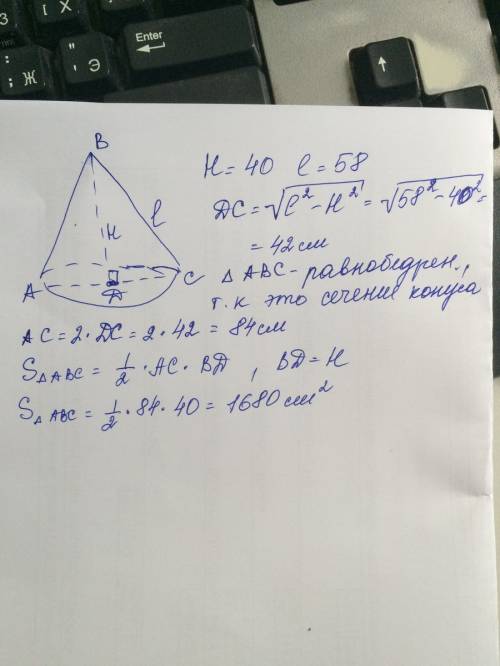 З
[ Х
}
:
; Ж
"
' Э
Enter
B
H = 40 l = 58
l
DC = √l² − H² = √58² − 40² =
H
= 42 см
A
Д
C
△ ABC - равнобедрен.,
т.к это сечение конуса
AC = 2 · DC = 2 · 42 = 84 см
S△ABC = 1/2 · AC · BД , BД = H
S△ABC = 1/2 · 84 · 40 = 1680 см²